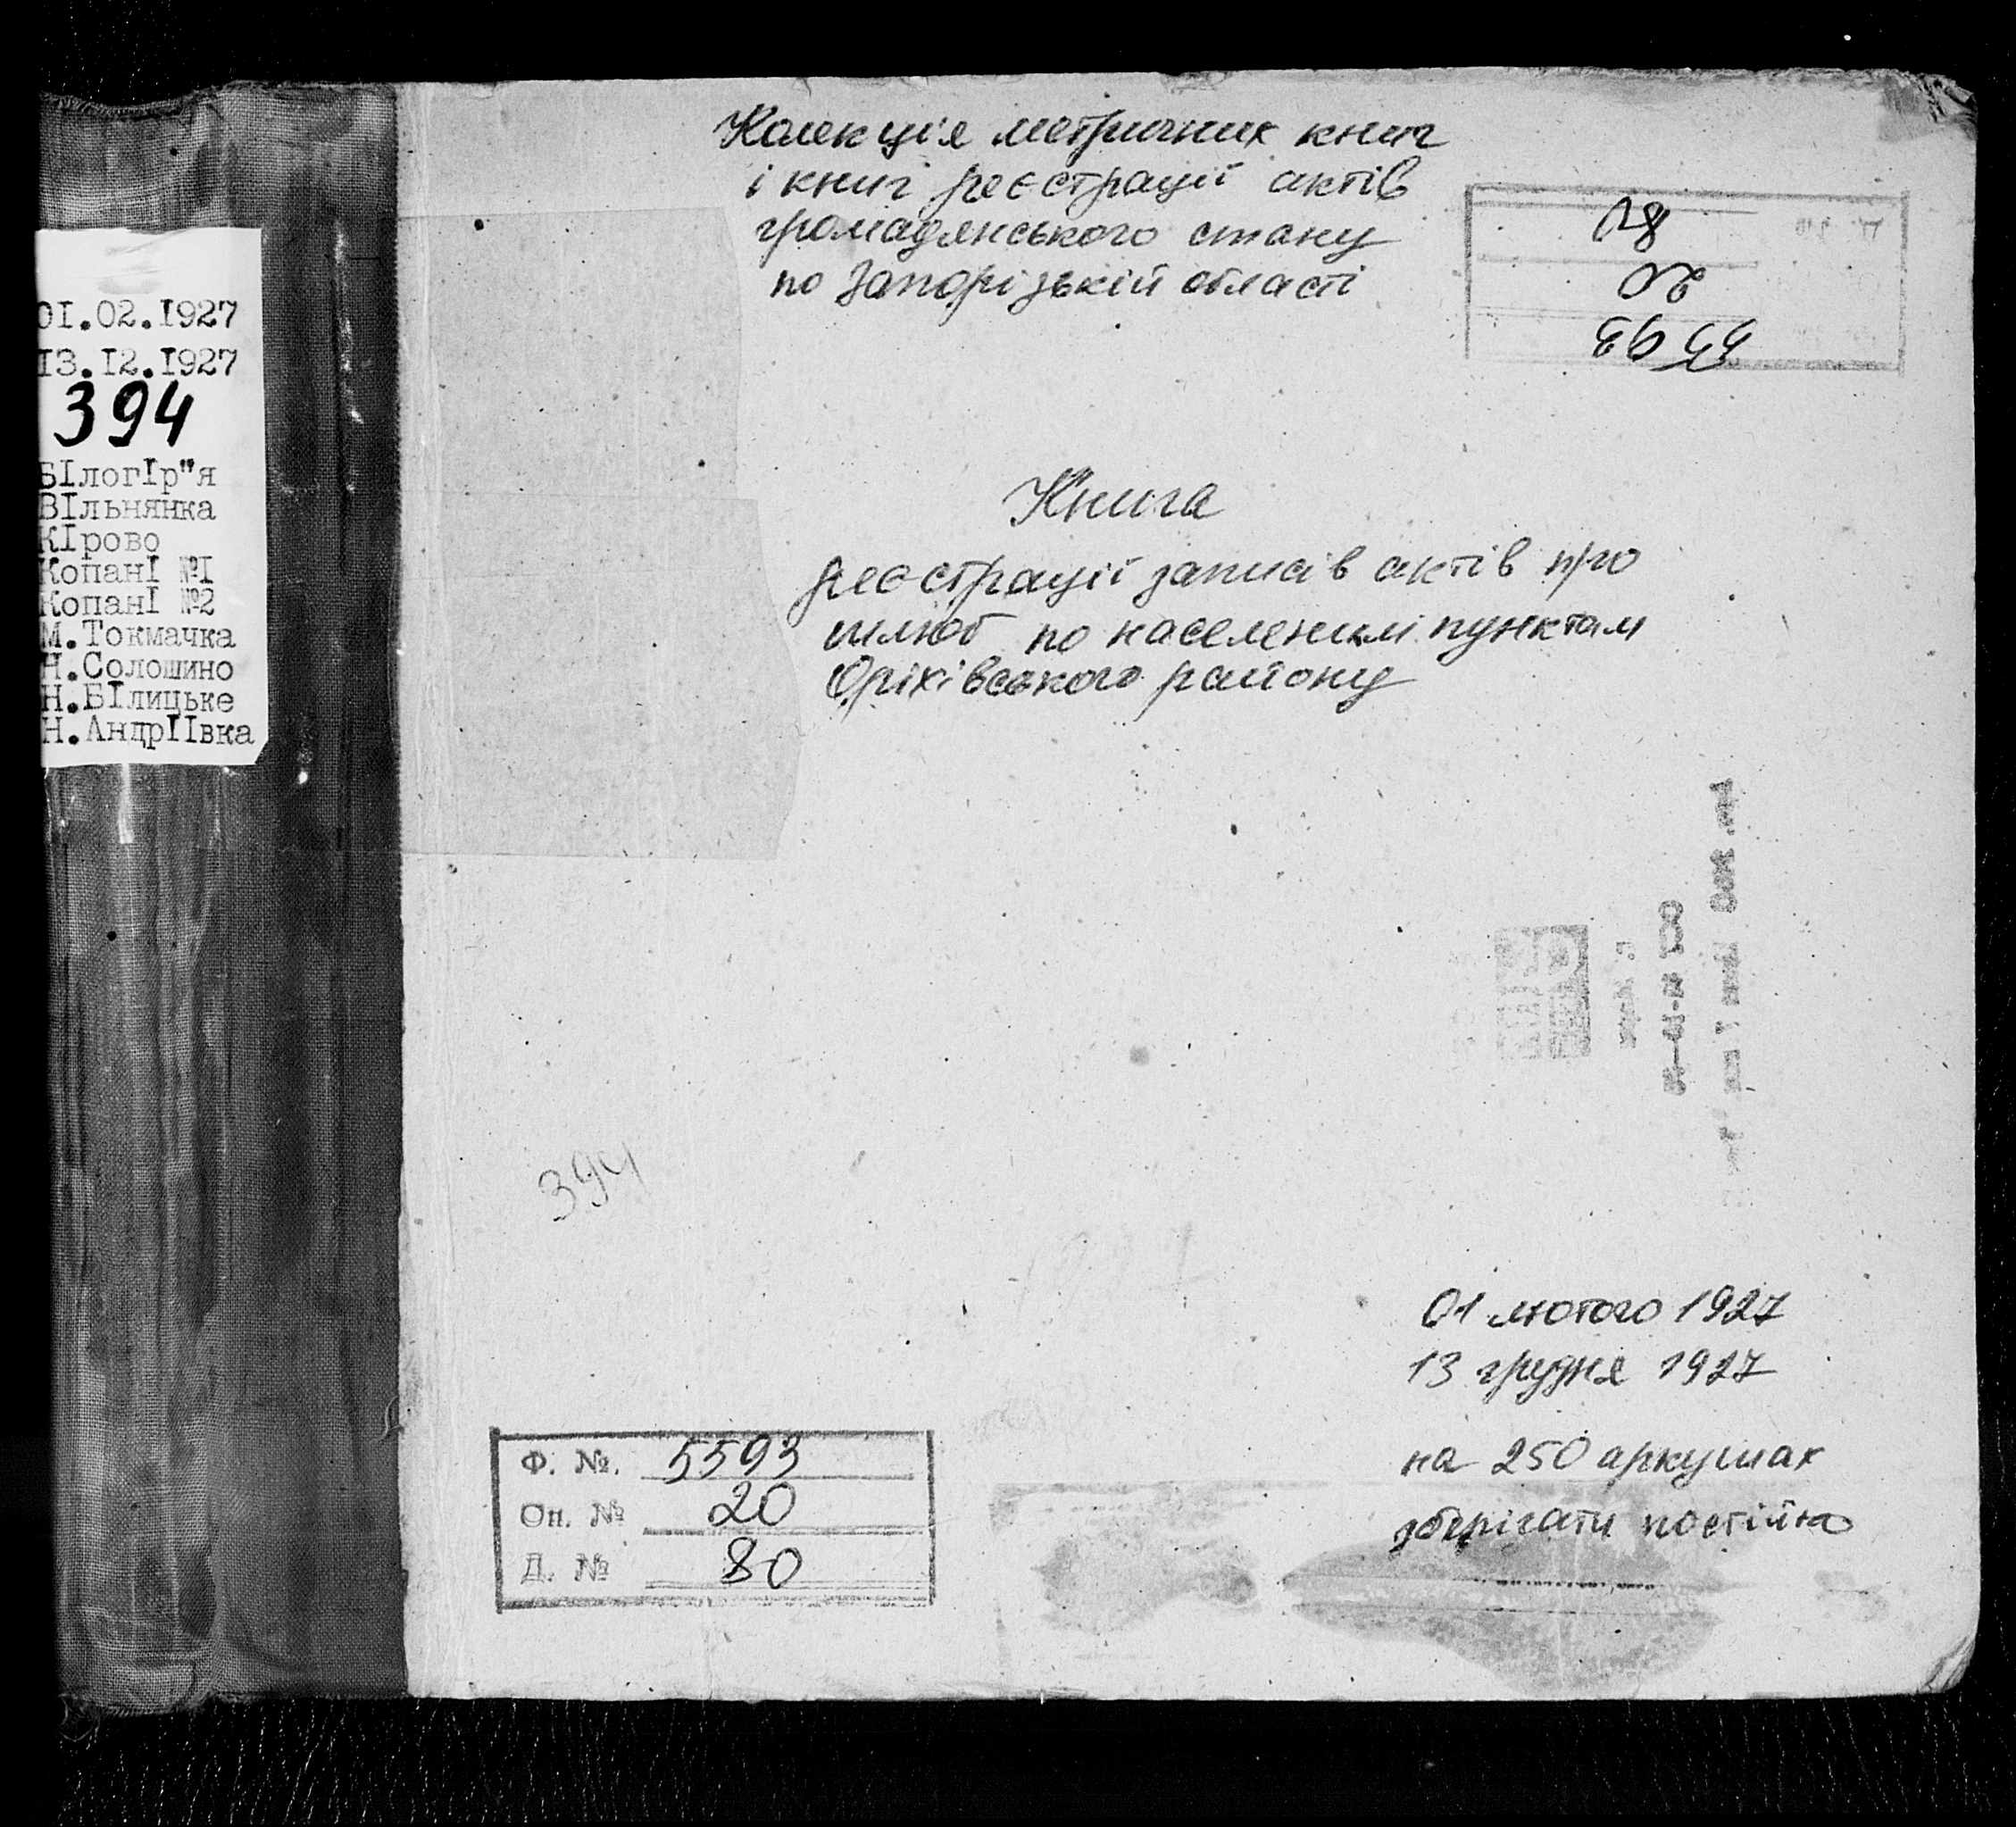 01.02.1927
13.12.1927
394
БІлогІр"я
ВІльнянка
КІрово
КопанІ №І
КопанІ №2
М.Токмачка
Н.Солошино
Н.БІлицьке
Н.АндрІІвка
Колекція метричних книг
і книг реєстрації актів
громадянського стану
по Запорізькій області
80
20
5593
Книга
реєстрації записів актів про
шлюб по населеним пунктам
Оріхівського району
394
01 лютого 1927
13 грудня 1927
на 250 аркушах
зберігати постійно
Ф. №. 5593
Оп. № 20
Д. № 80